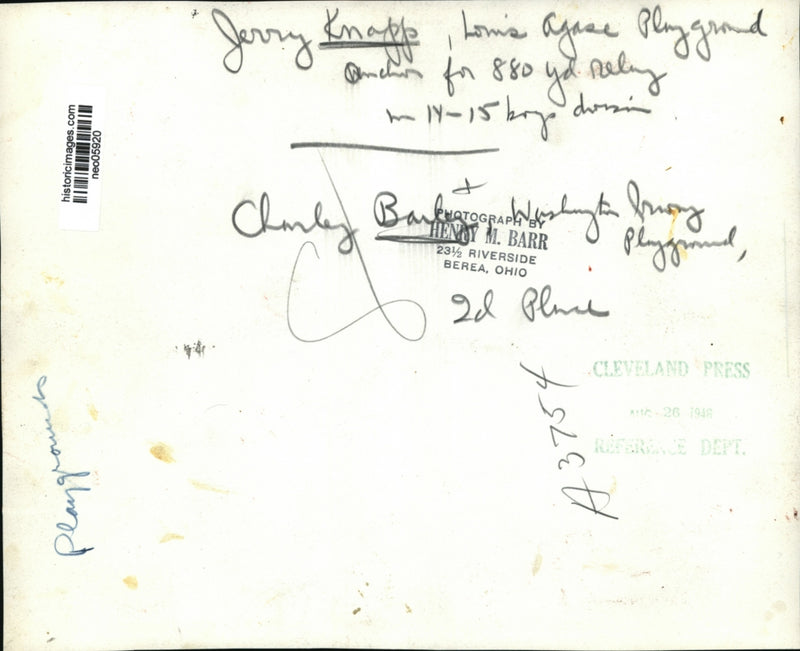 Jerry Knapp, Louis Agase Playground
Anchor for 880 yd relay
in 14-15 boys division
+
Charley Washington Irving
Playground,
2d Place
PHOTOGRAPH BY
HENRY M. BARR
23½ RIVERSIDE
BEREA, OHIO
historicimages.com
neo05920
CLEVELAND PRESS
AUG 26 1946
REFERENCE DEPT.
A3754
Playgrounds